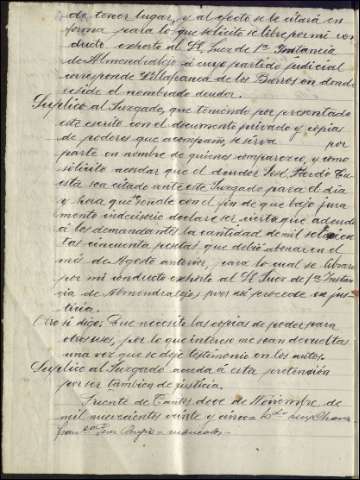 de tener lugar, y al efecto se le citará en
forma para lo que solicito se libre por mi con
ducto exhorto al Sr. Juez de 1ª Instancia
de Almendralejo á cuyo partido judicial
corresponde Villafranca de los Barros en donde
reside el nombrado deudor.
Suplico al Juzgado, que teniendo por presentado
este escrito con el documento privado y copias
de poderes que acompaño, se sirva por
parte en nombre de quienes comparezco, y como
solicito acordar que el deudor José Pardo
sea citado ante este Juzgado para el día
y hora que señale con el fin de que bajo jura
mento indecisorio declare ser cierto que adeuda
á los demandantes la cantidad de mil setecien
tas cincuenta pesetas que debió abonar en el
mes de Agosto anterior, para lo cual se librará
por mi conducto exhorto al Sr. Juez de 1ª Instan
cia de Almendralejo pues así procede en jus
ticia.
Otro si digo: Que necesito las copias de poder para
otros usos, por lo que intereso me sean devueltas
una vez que se deje testimonio en los autos.
Suplico al Juzgado acceda á esta pretensión
por ser también de justicia.
Fuente de Cantos doce de Noviembre de
mil novecientos veinte y cinco